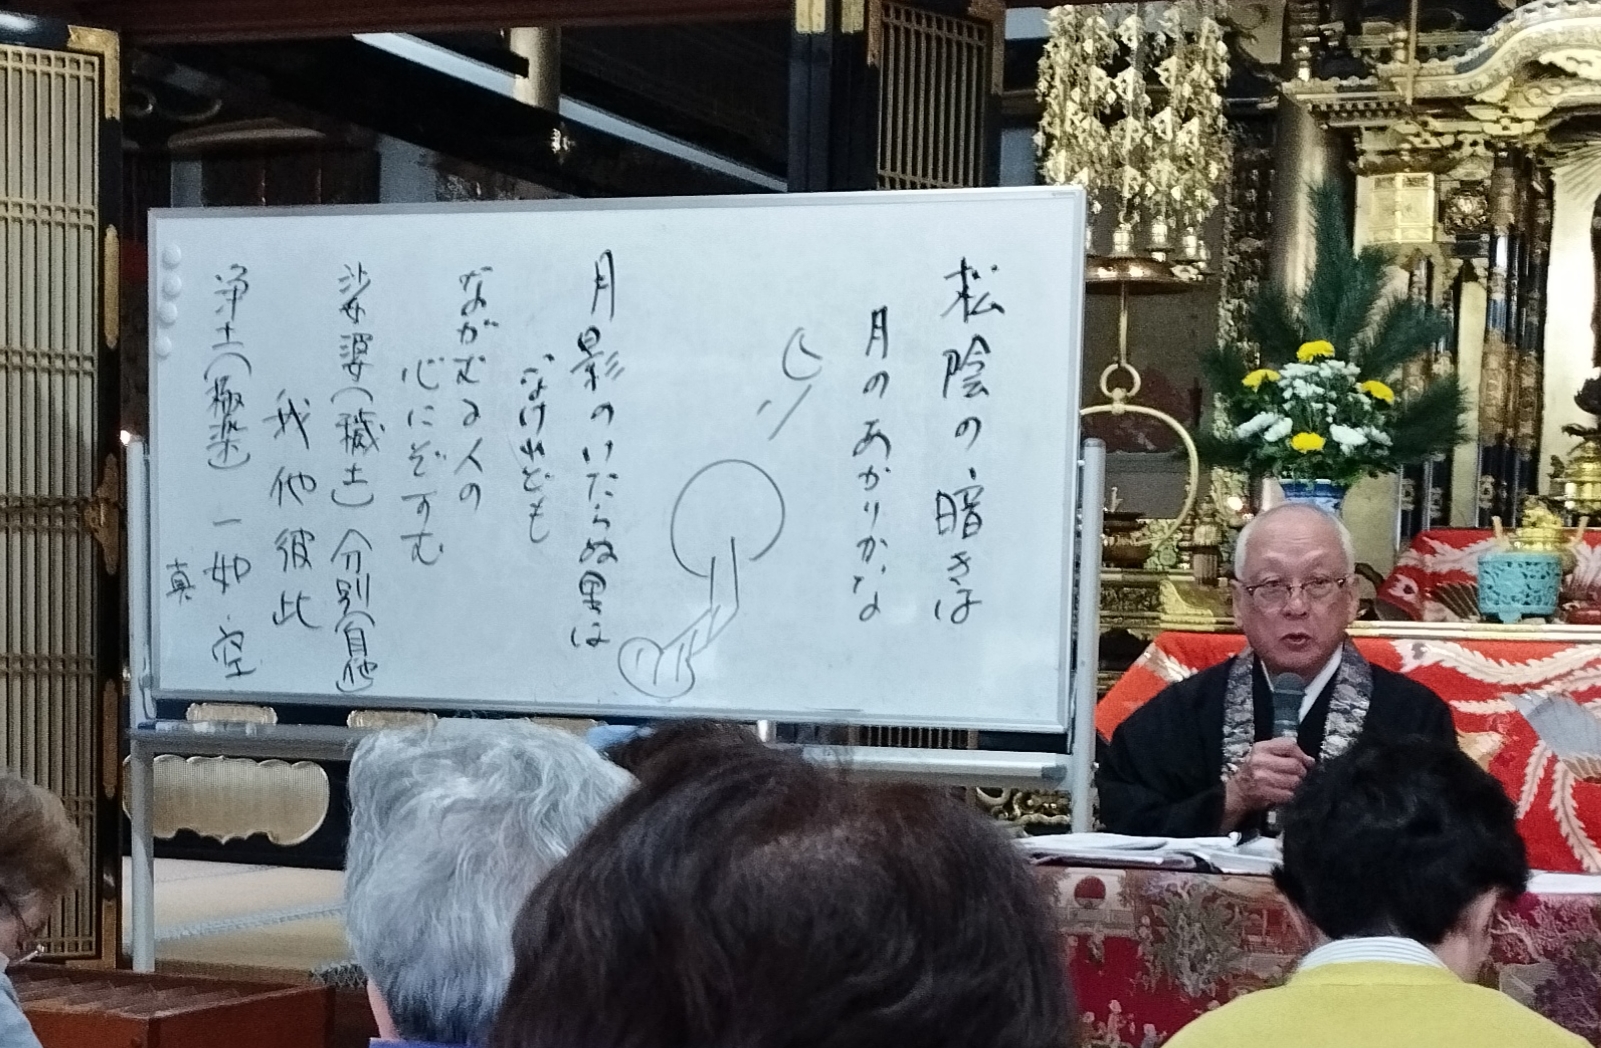 松陰の暗きは
月のあかりかな
月影のいたらぬ里は
なけれども
ながむる人の
心にぞすむ
娑婆(穢土)分別(自他)
我他彼此
浄土(極楽)一如・空
真